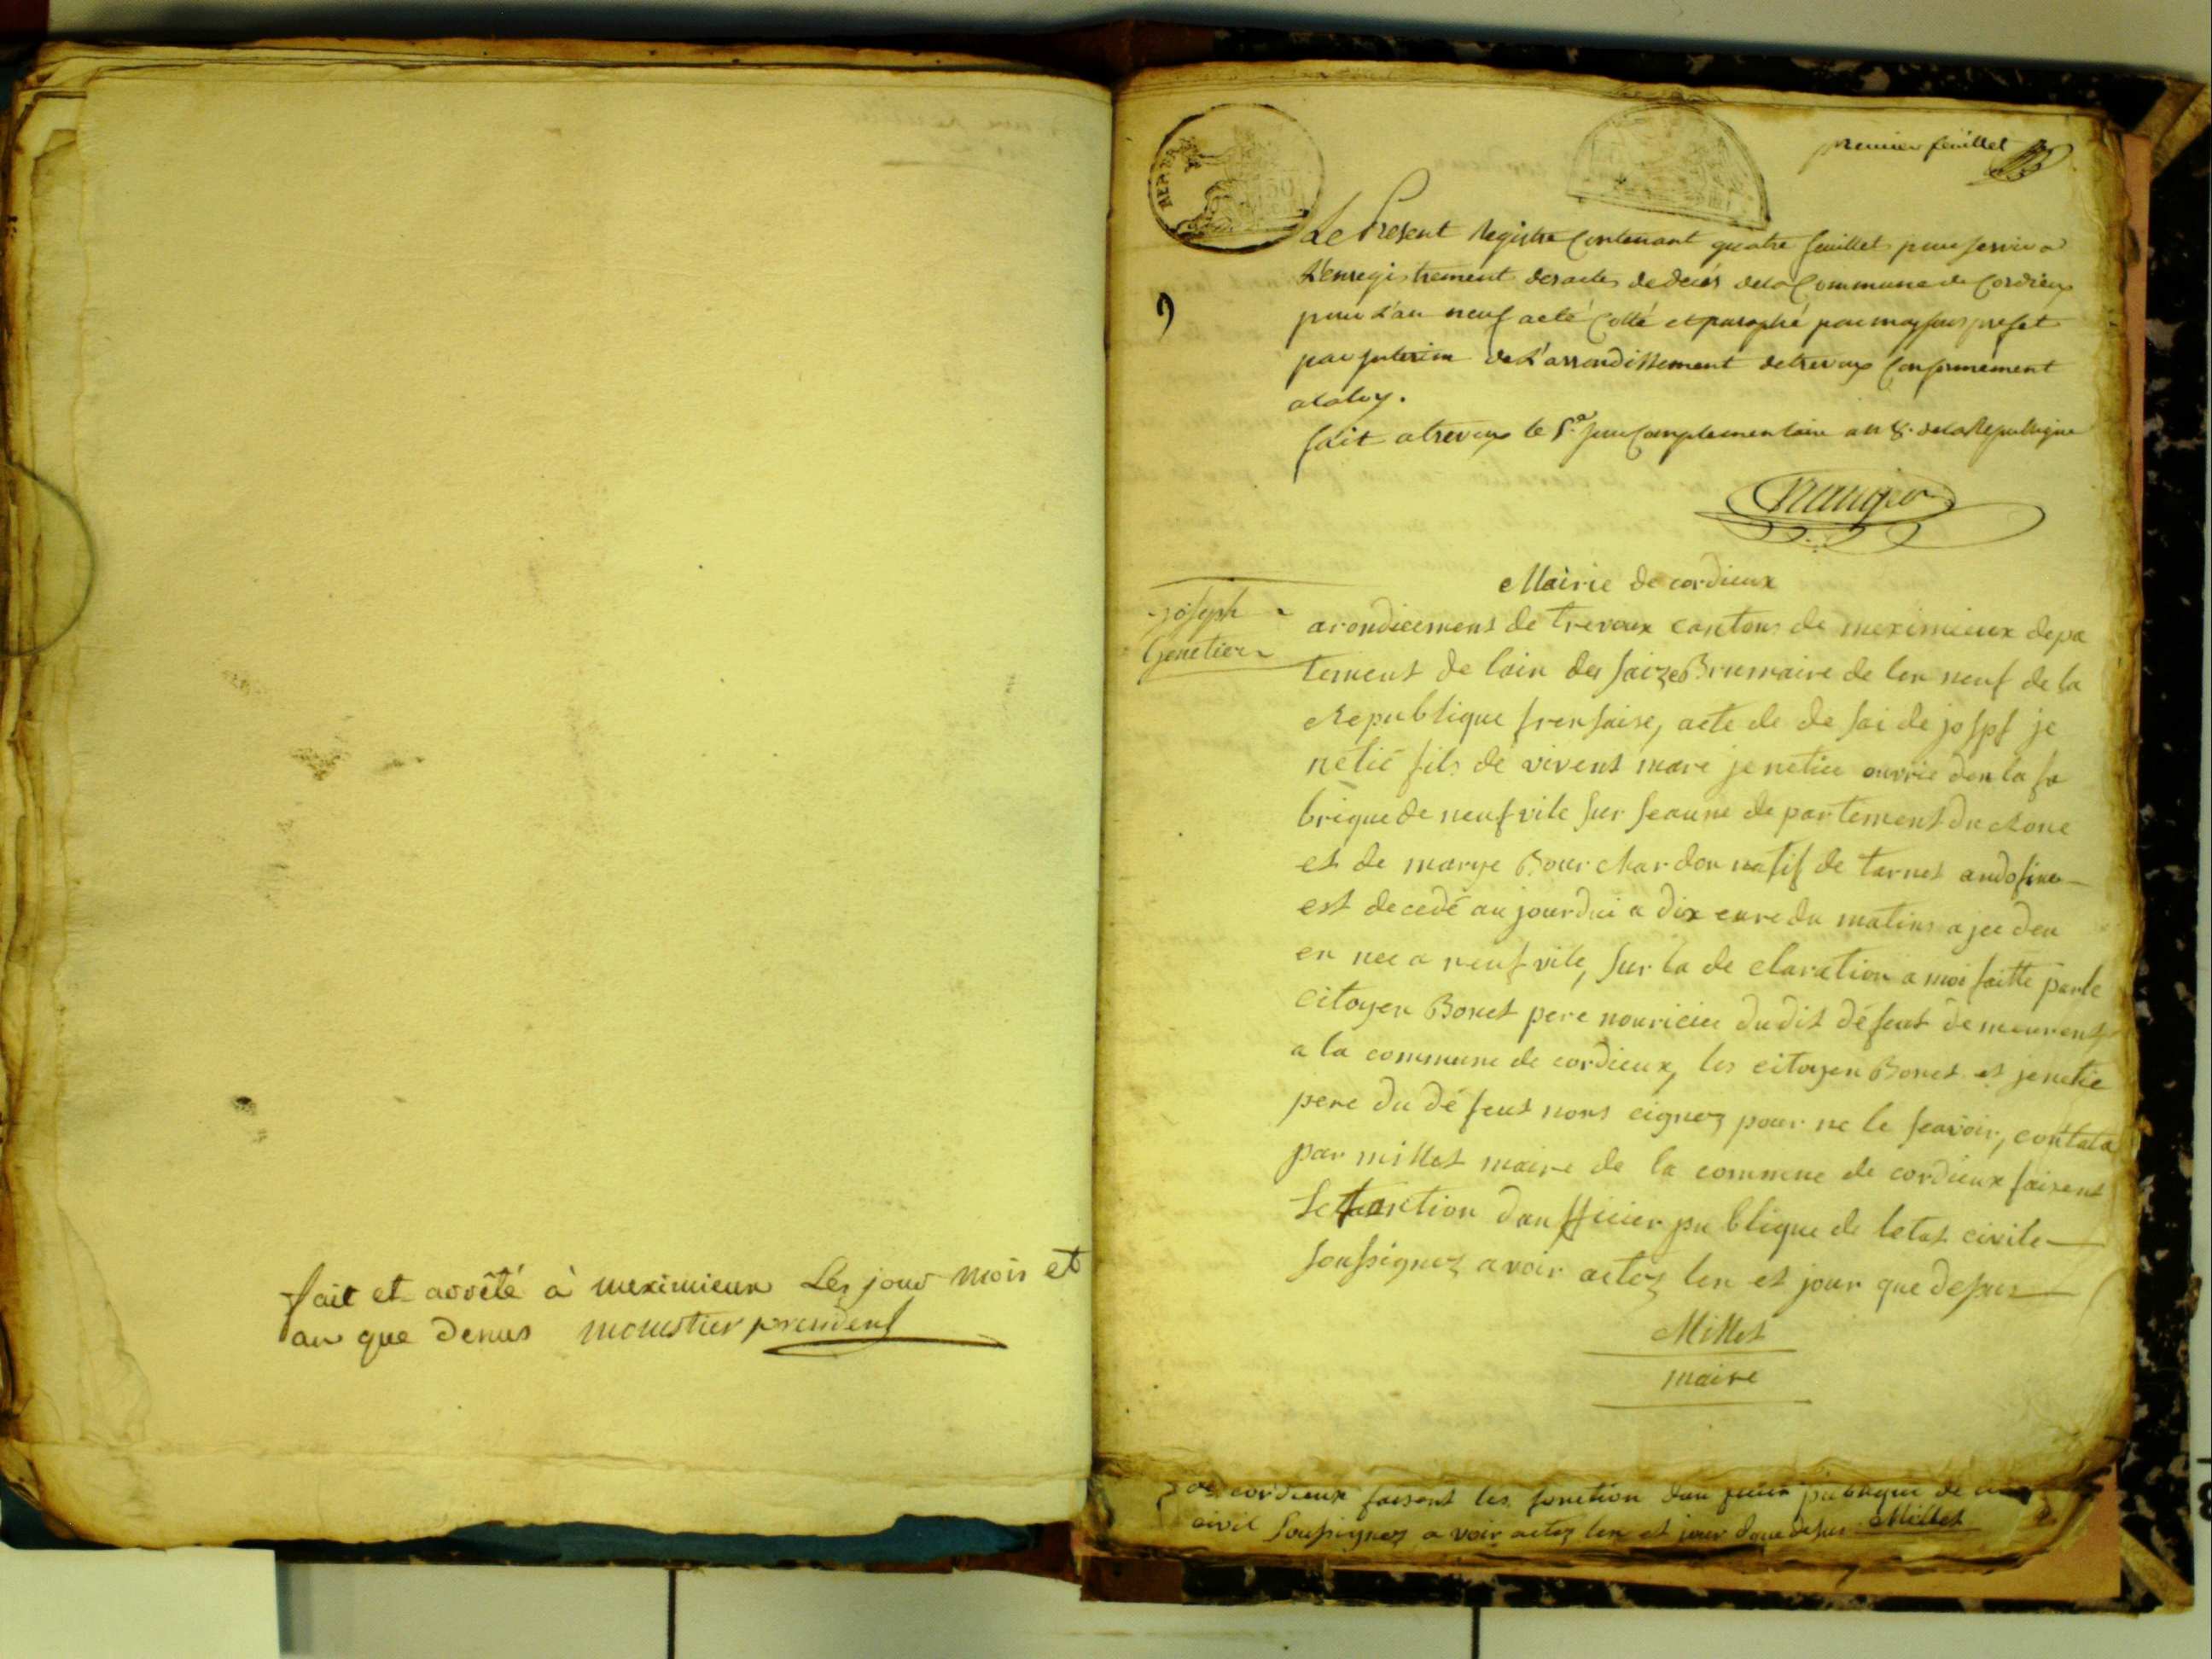 fait et arrêté à meximieux Les jour mois et
an que denus monestier president
premier feuillet
Le Present Registre Contenant quatre feuillet pour servir a
L'enregistrement des actes de decés de la Commune de Cordieux
pour L'an neuf acté Cotté et paraphé par moy sous prefet
par interim de L'arrondissement de trevoux Conformement
a la loy.
fait a trevoux le 5.e jour Complementaire an 8. de la Republique
Mairie de cordieux
Joseph
Genetier
arondicement de trevoux cantons de meximieux depa
tement de lain du saize Brumaire de lan neuf de la
Republique fransaise, acte de de sai de jospf je
netié fils de vivent mare jenetie ouvrie den la fa
brique de neufville sur seaune de partement du Rone
et de marye Bourchardon natif de tarnet andofine
est decedé aujourdui a dix eure du matins a jee deu
en nee a neufvile, sur la de claration a moi faitte par le
citoyen Bonet pere nouricier dudit défeut demeurent
a la commune de cordieux, les citoyen Bonet et jenetie
pere du défeut nons cignez pour ne le seavoir, contata
par millet maire de la commune de cordieux faisent
le fonction dan fficier publique de letat civile
soussignez avoir actez len et jour que desus
Millet
maire
de cordieux faisent les fonction dan publique de
civil soussignez a voir actez len et jour que desus Millet